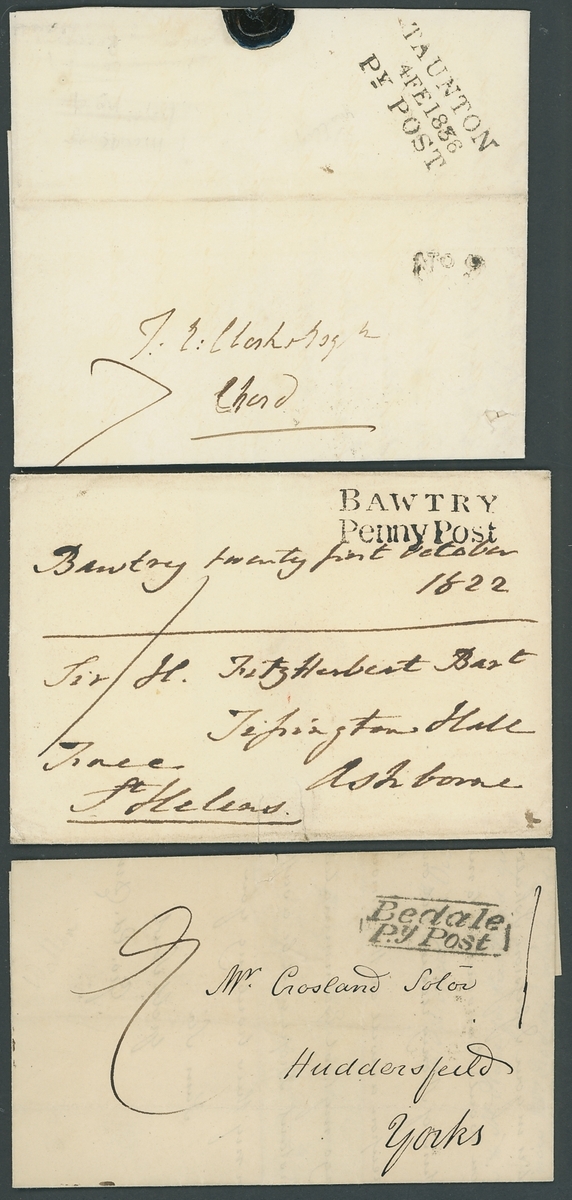 TAUNTON
4 FE 1836
Py POST
No 9
Chard
BAWTRY
Penny Post
Bawtry twenty first October
1822
Sir H. FitzHerbert Bart
Tissington Hall
Ashborne
Free
St Helens.
Bedale
P.y Post
Mr. Crosland Solor
Huddersfield
Yorks